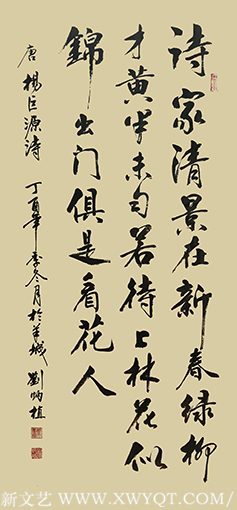 诗家清景在新春绿柳
才黄半未匀若待上林花似
錦出门俱是看花人
唐楊巨源诗 丁酉年季冬月於羊城 劉炳植
新文艺 WWW.XWYQT.COM/